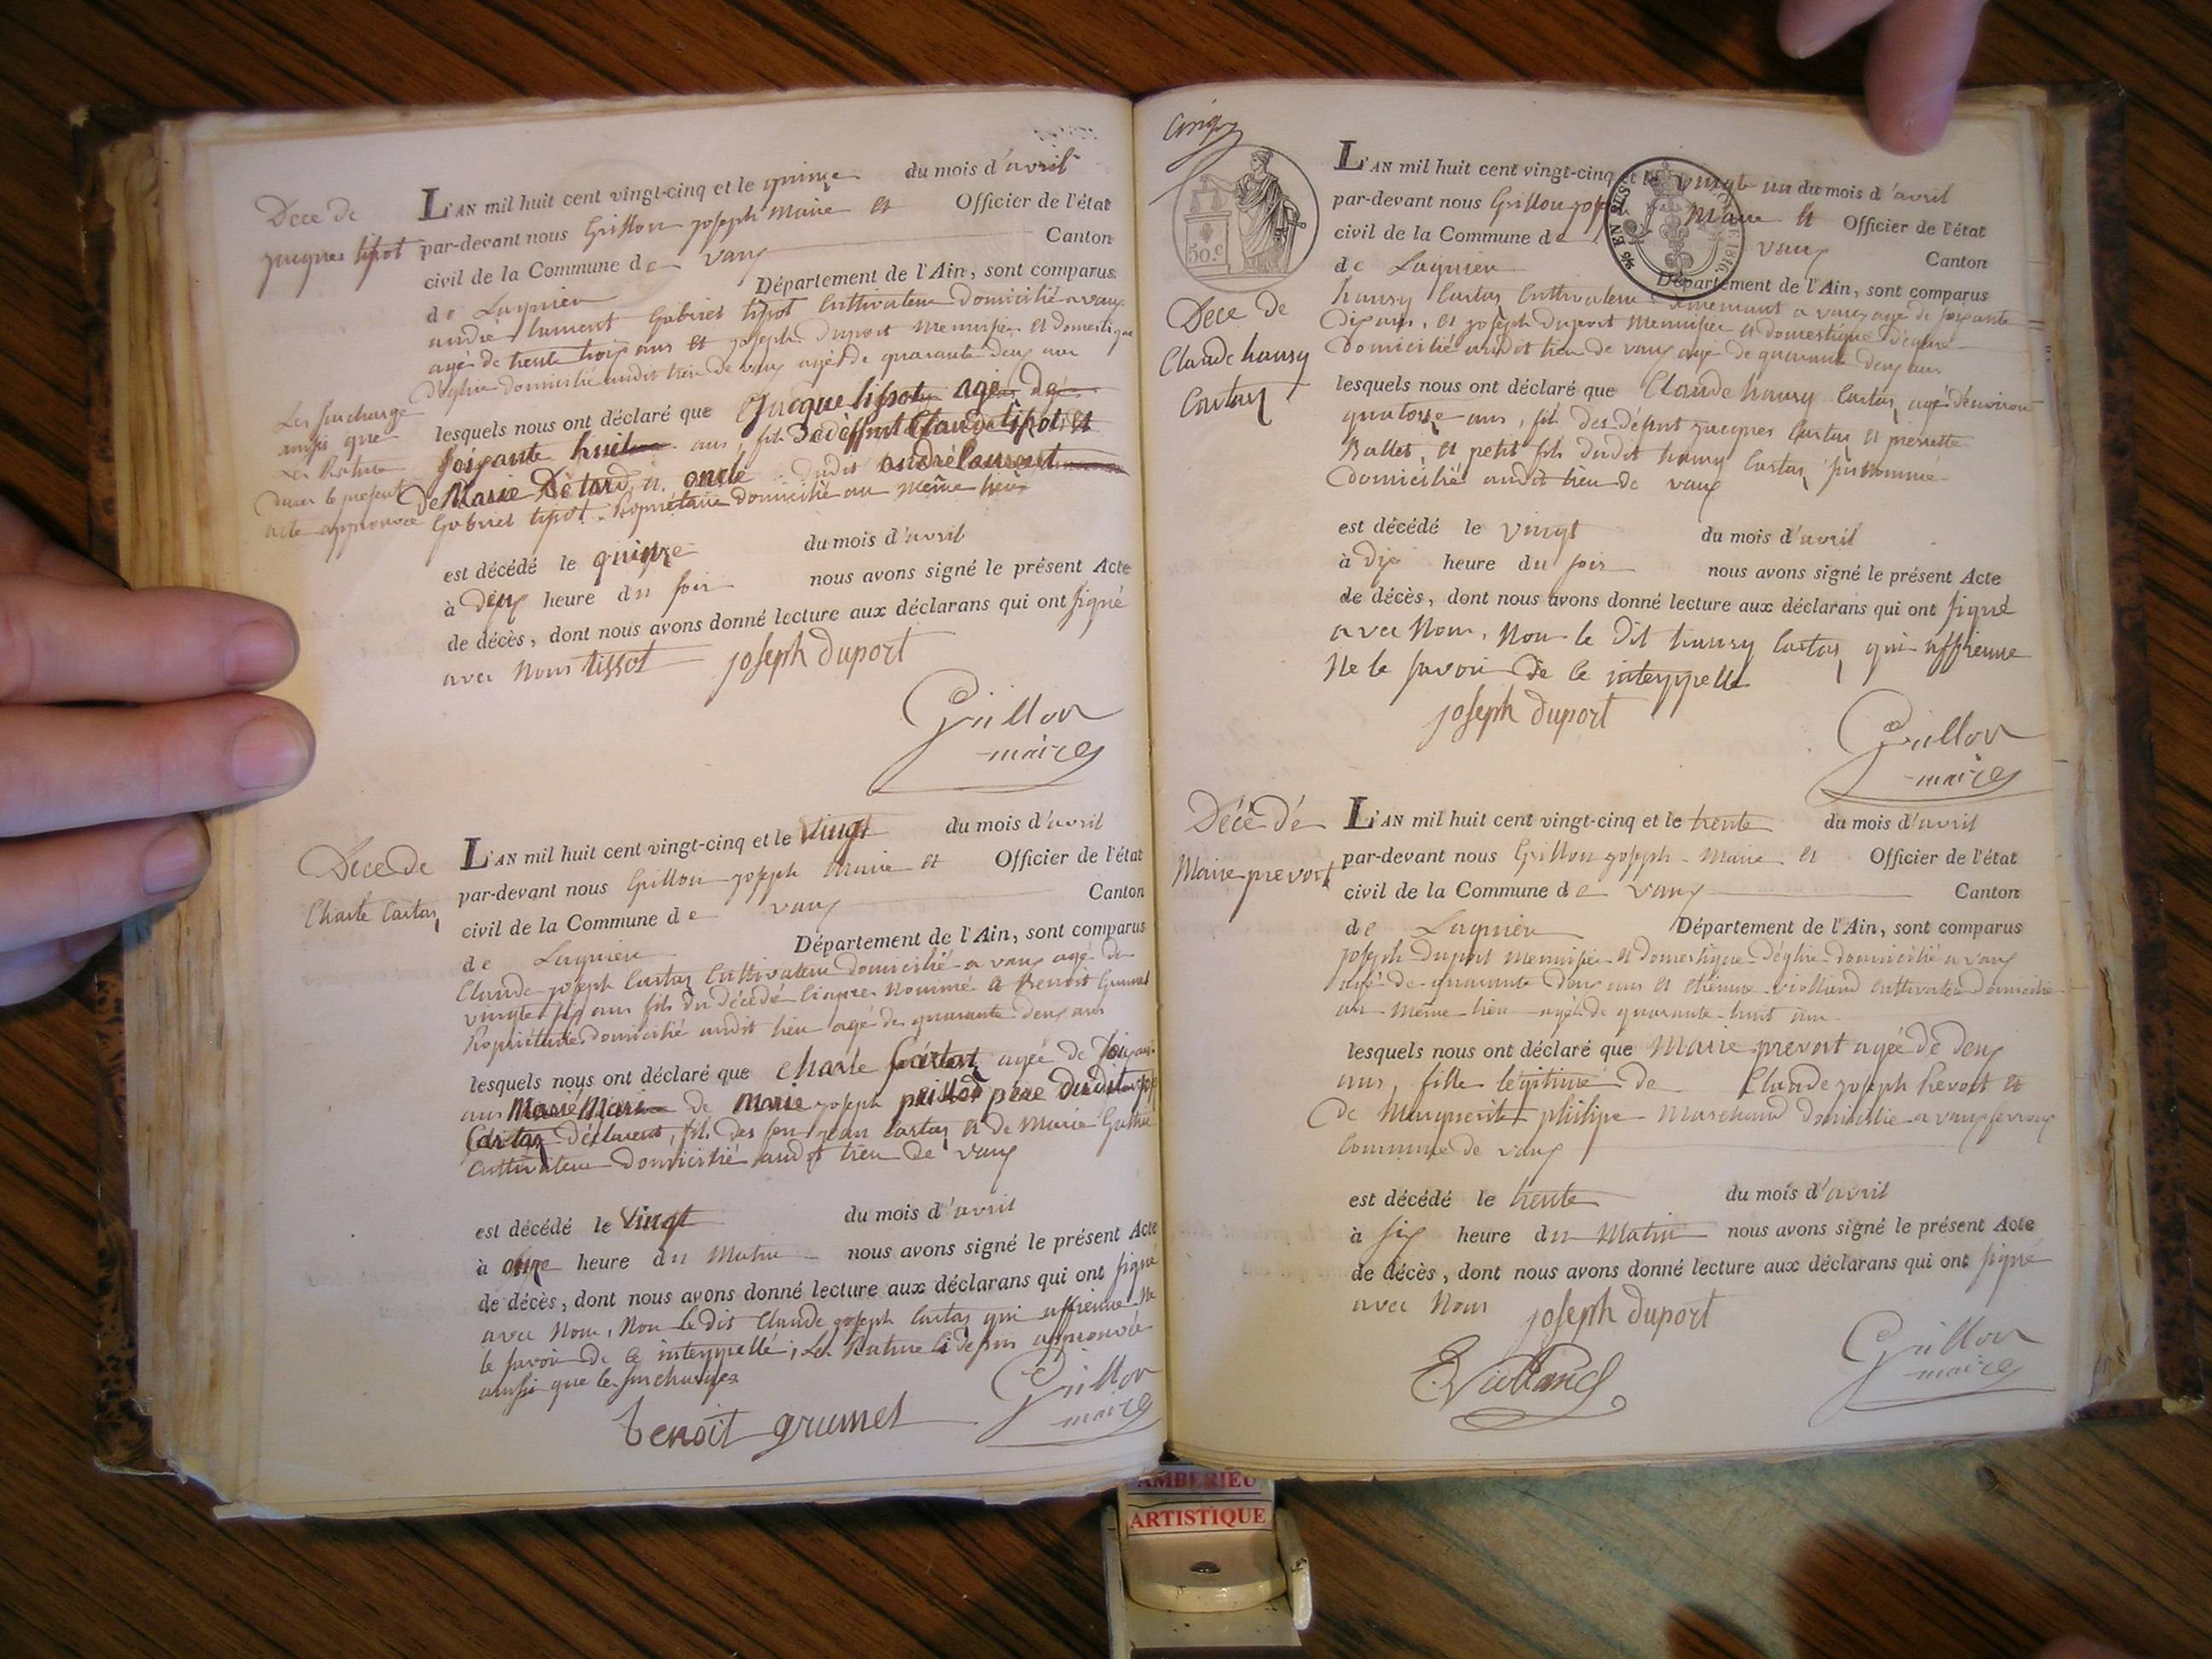 Dece de
jacques tissot
L'AN mil huit cent vingt-cinq et le quinze du mois d'avril
par-devant nous Grillon joseph Maire et Officier de l'état
civil de la Commune de vaux Canton
de Lagnieu Département de l'Ain, sont comparus
andré laurent Gabriel tissot Cultivateur Domicilié a vaux
agé de trente trois ans et joseph Duport Menuisier et domestique
d'église domicilié audit lieu de vaux agé de quarante deux ans
lesquels nous ont déclaré que jacque tissot agé de
soixante huit ans, fils de deffunt Claude tissot, et
de Marie oncle dudit andré laurent
Gabriel tissot, Propriétaire domicilié au même lieu
Les surcharge
ainsi que
La Rature
dans le présent
acte approuvée
est décédé le quinze du mois d'avril
à deux heure du soir nous avons signé le présent Acte
de décès, dont nous avons donné lecture aux déclarans qui ont signé
avec Nous tissot joseph duport
Grillon
maire
Dece de
Charle Cartaz
L'AN mil huit cent vingt-cinq et le vingt du mois d'avril
par-devant nous Grillon joseph Maire et Officier de l'état
civil de la Commune de vaux Canton
de Lagnieu Département de l'Ain, sont comparus
Claude joseph Cartaz Cultivateur domicilié a vaux agé de
vingt six ans fils du décédé ciapres Nommé et Benoit Grumet
Propriétaire domicilié audit lieu agé de quarante deux ans
lesquels nous ont déclaré que charle Cartaz agée de
ans de Marie joseph père dudit
Cartaz déclarent, fils des feu jean Cartaz et de Marie
Cultivateur domicilié audit lieu de vaux
est décédé le vingt du mois d'avril
à onze heure du Matin nous avons signé le présent Acte
de décès, dont nous avons donné lecture aux déclarans qui ont signé
avec Nous, Non le dit Claude joseph Cartaz qui affirme Ne
le savoir de ce interppellé; La Rature ci dessus approuvée
ainsi que les surcharges
benoit grumet
Grillon
maire
cinq
50.C
Dece de
Claude hausy
Cartaz
L'AN mil huit cent vingt-cinq et le vingt un du mois d'avril
par-devant nous Grillon joseph Maire et Officier de l'état
civil de la Commune de vaux Canton
de Lagnieu Département de l'Ain, sont comparus
hausy Cartaz Cultivateur a vaux agé de soixante
dix ans, et joseph Duport Menuisier et domestique d'église
Domicilié audit lieu de vaux agé de quarante deux ans
lesquels nous ont déclaré que Claude hausy Cartaz agé d'environ
quatorze ans, fils des défunt jacques Cartaz et pierrette
Ballet, et petit fils dudit hausy Cartaz susnommé
Domicilié audit lieu de vaux
est décédé le vingt du mois d'avril
à dix heure du soir nous avons signé le présent Acte
de décès, dont nous avons donné lecture aux déclarans qui ont signé
avec Nous, Non le dit hausy Cartaz qui affirme
Ne le savoir de ce interppellé
joseph duport
Grillon
maire
Décé dé
Marie prevost
L'AN mil huit cent vingt-cinq et le trente du mois d'avril
par-devant nous Grillon joseph Maire et Officier de l'état
civil de la Commune de vaux Canton
de Lagnieu Département de l'Ain, sont comparus
joseph Duport Menuisier et domestique d'église domicilié a vaux
agé de quarante deux ans et etienne violland Cultivateur domicilié
au même lieu agé de quarante huit ans
lesquels nous ont déclaré que Marie prevost agée de deux
ans, fille légitime de Claude joseph Prevost et
de Marguerite philipe Marchand domicilié a vaux fevroux
Commune de vaux
est décédé le trente du mois d'avril
à six heure du Matin nous avons signé le présent Acte
de décès, dont nous avons donné lecture aux déclarans qui ont signé
avec Nous joseph duport
E. Violland
Grillon
maire
AMBERIEU
ARTISTIQUE